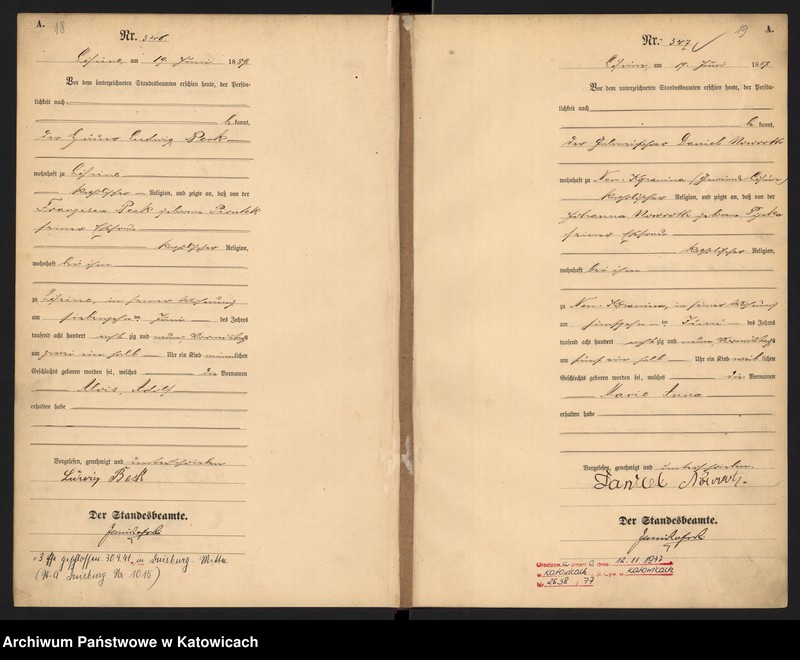 A.
18
Nr. 346
am 19. Juni 1889
Vor dem unterzeichneten Standesbeamten erschien heute, der Persön-
lichkeit nach
be kannt,
der Häuer Ludwig Beck
wohnhaft zu
katholischer Religion, und zeigte an, daß von der
Franziska Beck geborne Piontek
seiner Ehefrau
katholischer Religion,
wohnhaft bei ihm
zu in seiner Wohnung
am siebenzehnten Juni des Jahres
tausend acht hundert acht zig und neun Vormittags
um zwei ein halb Uhr ein Kind männlichen
Geschlechts geboren worden sei, welches die Vornamen
Alois, Adolf
erhalten habe
Vorgelesen, genehmigt und unterschrieben
Ludwig Beck
Der Standesbeamte.
30.9.41. in Duisburg-Mitte
(St-A Duisburg Nr. 1015)
19
A.
Nr. 347
am 19. Juni 1889
Vor dem unterzeichneten Standesbeamten erschien heute, der Persön-
lichkeit nach
be kannt,
der Daniel Nowroth
wohnhaft zu Neu-
katholischer Religion, und zeigte an, daß von der
Johanna Nowroth geborne
seiner Ehefrau
katholischer Religion,
wohnhaft bei ihm
zu Neu- in seiner Wohnung
am fünfzehn ten Juni des Jahres
tausend acht hundert acht zig und neun Vormittags
um fünf ein halb Uhr ein Kind weib lichen
Geschlechts geboren worden sei, welches die Vornamen
Marie Anna
erhalten habe
Vorgelesen, genehmigt und unterschrieben.
Daniel Nowroth.
Der Standesbeamte.
dnia 12.11.1977
w Katowicach Katowicach
Nr. 2638 / 77
Archiwum Państwowe w Katowicach